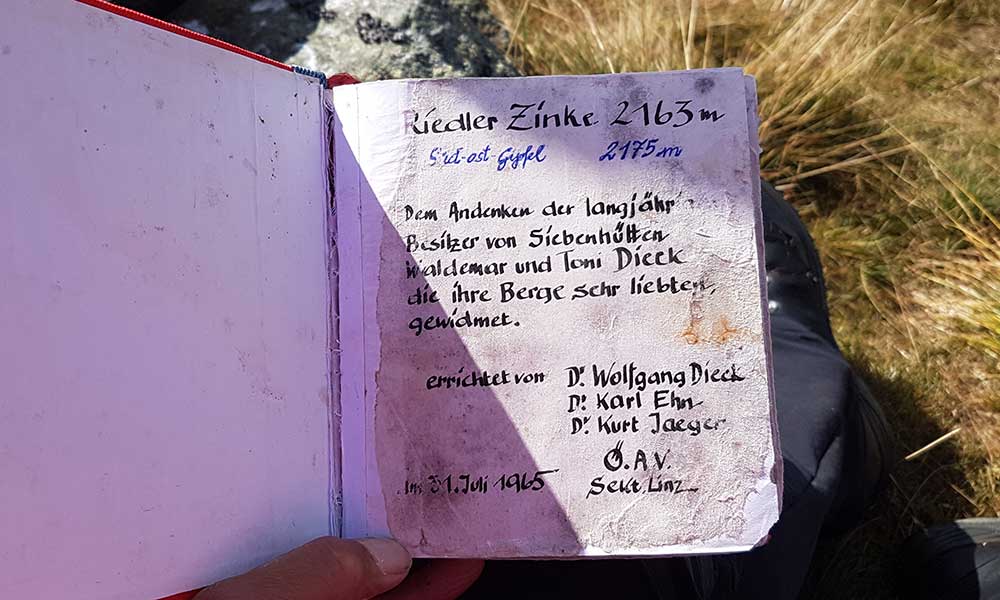 Riedler Zinke 2163 m
Süd-ost Gipfel 2175 m
Dem Andenken der langjähr
Besitzer von Siebenhütten
Waldemar und Toni Dieck
die ihre Berge sehr liebten,
gewidmet.
errichtet von Dr. Wolfgang Dieck
Dr. Karl Ehn
Dr. Kurt Jaeger
Ö.A.V.
31. Juli 1965 Sekt. Linz